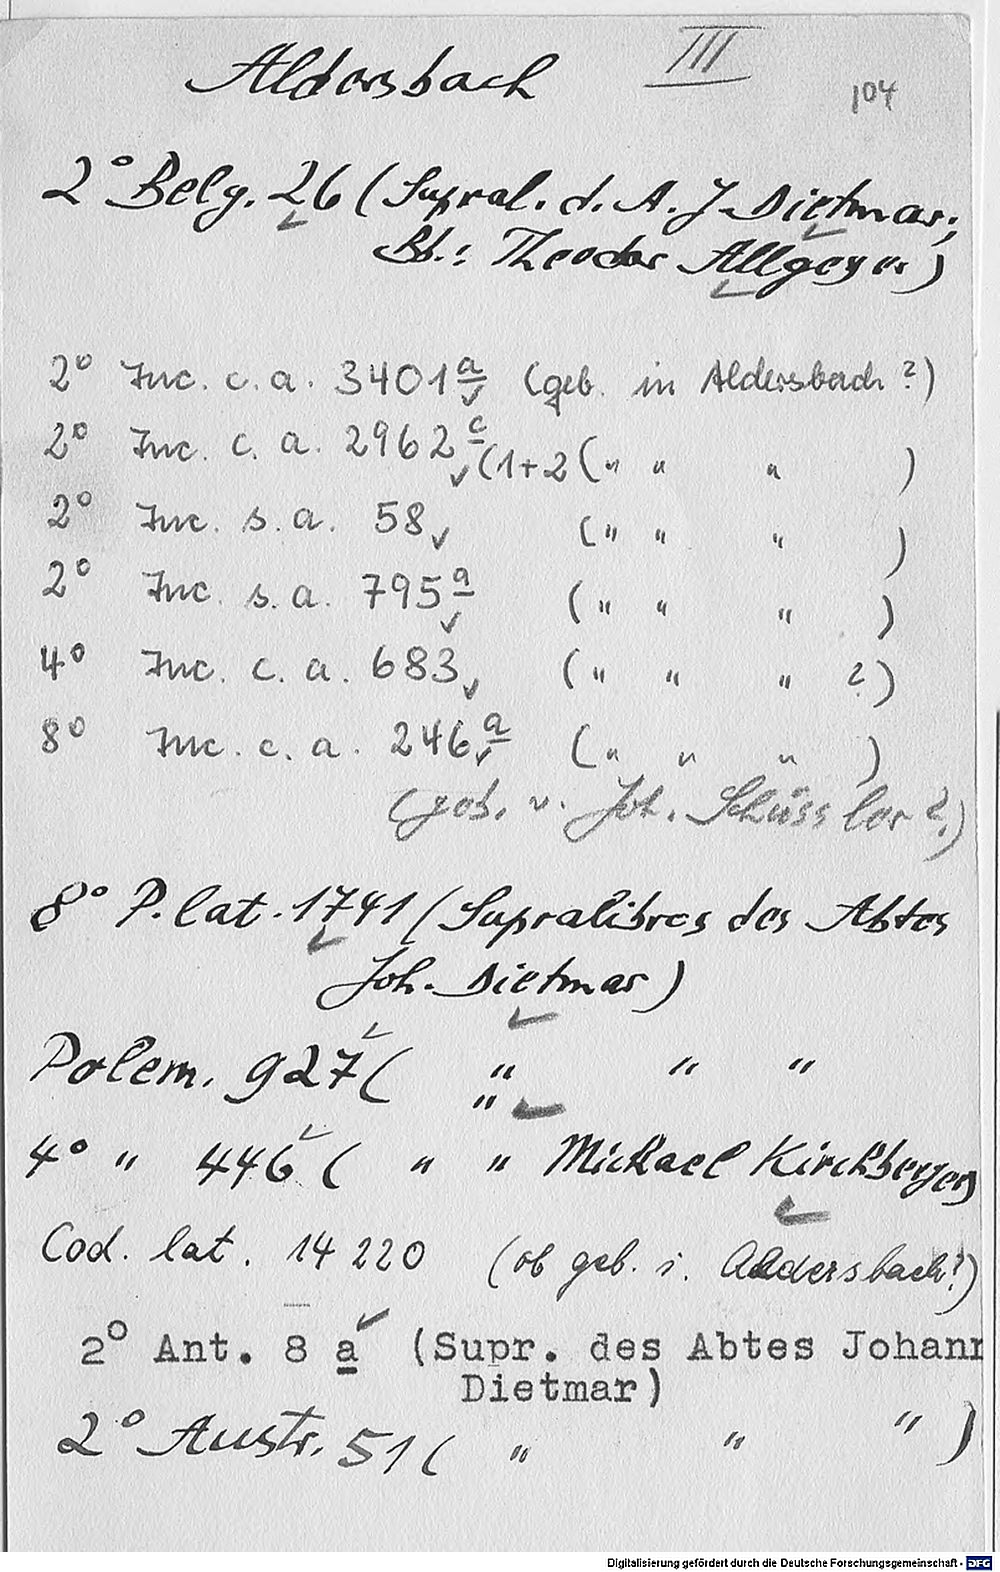 Aldersbach III
104
2° Belg. 26 (Supral. d. A. J. Dietmar;
Bb.: Theodor Allgeyer)
2° Inc. c. a. 3401 a (geb. in Aldersbach?)
2° Inc. c. a. 2962 c (1+2 (" " " )
2° Inc. s. a. 58 (" " " )
2° Inc. s. a. 795 a (" " " )
4° Inc. c. a. 683 (" " " ?)
8° Inc. c. a. 246 a (" " " )
(geb. v. Joh. Schüssler?)
8° P. lat. 1741 (Supralibros des Abtes
Joh. Dietmar)
Polem. 927 ( " " "
"
4° " 446 ( " " Michael Kirchberger
Cod. lat. 14220 (ob geb. i. Aldersbach?)
2° Ant. 8 a (Supr. des Abtes Johann
Dietmar)
2° Austr. 51 ( " " " )
Digitalisierung gefördert durch die Deutsche Forschungsgemeinschaft - DFG